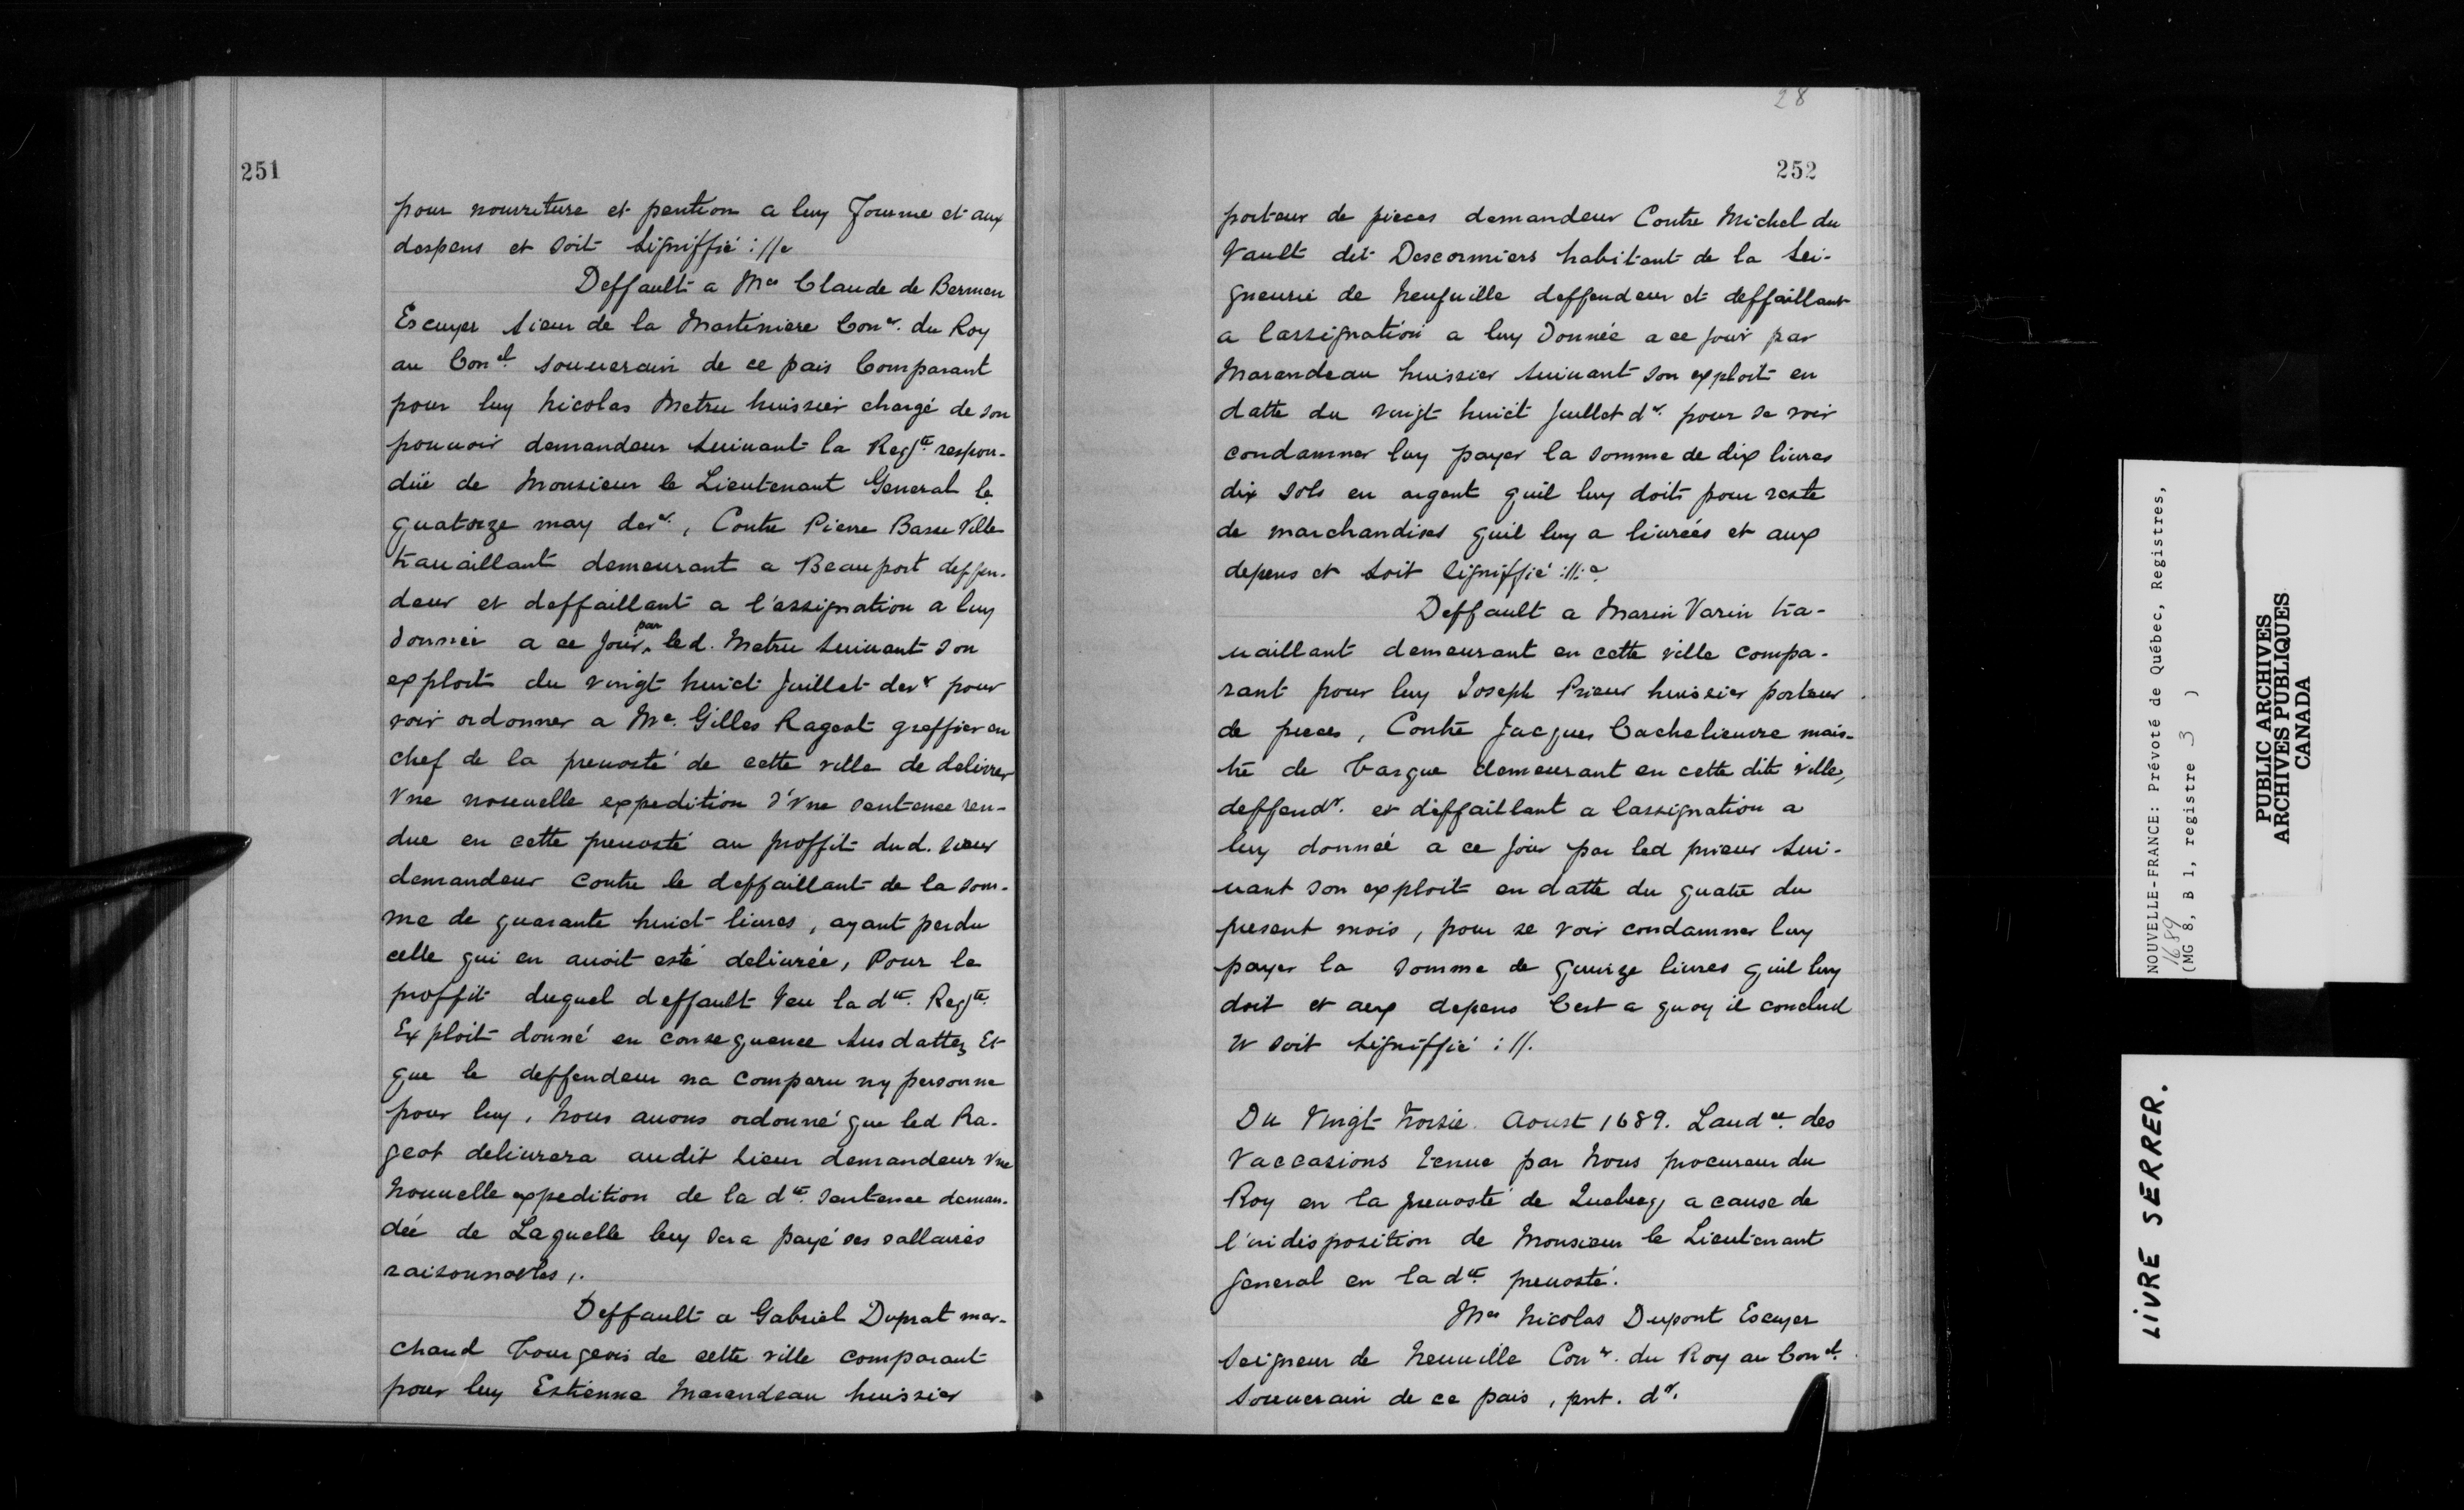 251
pour nourriture et pention a luy fournie et aux
despens et soit signiffié ://.
Deffault a Me Claude de Bermen
Escuyer sieur de la Martiniere Conr. du Roy
au Conel souuerain de ce pais Comparant
pour luy Nicolas Metru huissier chargé de son
pouuoir demandeur suiuant la Reqte respon-
düe de Monsieur le Lieutenant General le
quatorze may derr., Contre Pierre Basse Ville
trauaillant demeurant a Beauport deffen-
deur et deffaillant a l'assignation a luy
donnée a ce jour par led. Metru suiuant son
exploit du vingt huict Juillet derr pour
voir ordonner a Me. Gilles Rageot greffier en
chef de la preuosté de cette ville de deliurer
Vne nouuelle expedition d'Vne sentence ren-
due en cette preuosté au proffit dud. sieur
demandeur contre le deffaillant de la som-
me de quarante huict liures, ayant perdu
celle qui en auoit esté deliurée, Pour le
proffit duquel deffault Veu la dte. Reqte.
Exploit donné en consequence susdattez Et
que le deffendeur na comparu ny personne
pour luy. Nous auons ordonné que led Ra-
geot deliurera audit sieur demandeur Vne
Nouuelle expedition de la dte. sentence deman-
dée de Laquelle luy sera payé ses sallaires
raisonnables,.
Deffault a Gabriel Duprat mar-
chand bourgeois de cette ville comparant
pour luy Estienne Marandeau huissier
28
252
porteur de pieces demandeur Contre Michel du
Vault dit Descormiers habitant de la sei-
gneurie de Neufuille deffendeur et deffaillant
a lassignation a luy donnée a ce jour par
Marandeau huissier suiuant son exploit en
datte du vingt huict Juillet dr. pour se voir
condamner luy payer la somme de dix liures
dix sols en argent quil luy doit pour reste
de marchandises quil luy a liurées et aux
depens et soit signiffié ://.
Deffault a Marin Varin tra-
uaillant demeurant en cette ville compa-
rant pour luy Joseph Prieur huissier porteur
de pieces, Contre Jacques Cachelieure mais-
tre de barque demeurant en cette dite ville,
deffendr. et deffaillant a lassignation a
luy donnée a ce jour par led prieur sui-
uant son exploit en datte du quatre du
present mois, pour se voir condamner luy
payer la somme de quinze liures quil luy
doit et aux depens Cest a quoy il conclud
et soit signiffié ://.
Du Vingt troisie. Aoust 1689. Laudce. des
Vaccasions tenue par Nous procureur du
Roy en la preuosté de Quebecq a cause de
l'indisposition de Monsieur le Lieutenant
general en la dte preuosté.
Me Nicolas Dupont Escuyer
Seigneur de Neuuille Conr. du Roy au Conel.
Souuerain de ce pais, pnt. dr.
NOUVELLE-FRANCE: Prévoté de Québec, Registres,
1689
(MG 8, B 1, registre 3 )
PUBLIC ARCHIVES
ARCHIVES PUBLIQUES
CANADA
LIVRE SERRER.